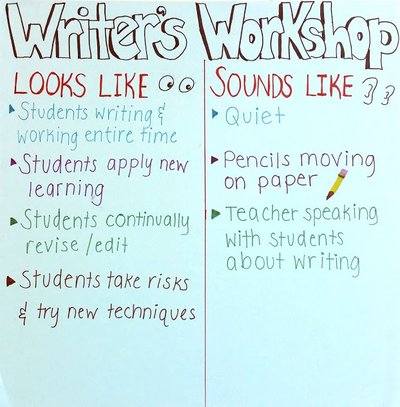 Writer's Workshop
LOOKS LIKE
Students writing &
working entire time
Students apply new
learning
Students continually
revise/edit
Students take risks
& try new techniques
SOUNDS LIKE
Quiet
Pencils moving
on paper
Teacher speaking
with students
about writing